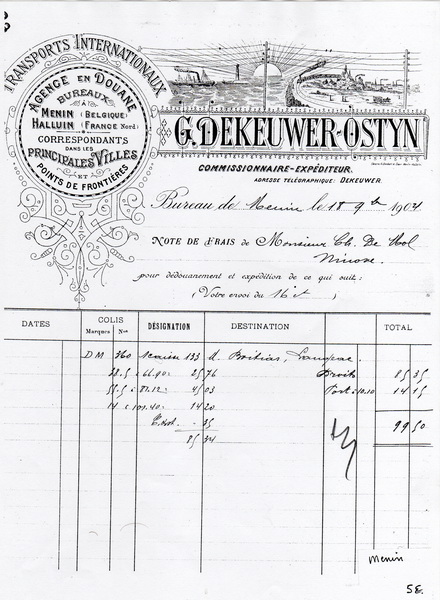 TRANSPORTS INTERNATIONAUX
AGENCE EN DOUANE
BUREAUX
À
MENIN (BELGIQUE)
HALLUIN (FRANCE Nord)
CORRESPONDANTS
DANS LES
PRINCIPALES VILLES
ET
POINTS DE FRONTIÈRES
G. DEKEUWER-OSTYN
COMMISSIONNAIRE-EXPÉDITEUR.
ADRESSE TÉLÉGRAPHIQUE: DEKEUWER.
Bureau de Menin le 18 9bre 1904
NOTE DE FRAIS de Monsieur Ch. De Mol
Ninove
pour dédouanement et expédition de ce qui suit:
(Votre envoi du 16 ct)
DATES COLIS DÉSIGNATION DESTINATION TOTAL
Marques Nos
DM 360 133 Droits 85 35
25 76 Port 10.10 14 15
45 03
14 20
35 99 50
85 34
Menin
58.